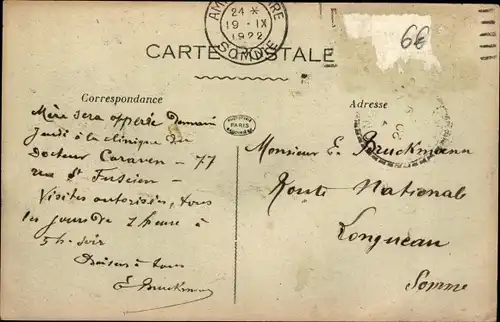 24 *
19 - IX
1922
SOMME
66
CARTE POSTALE
Correspondance
Adresse
PARIS
Mère sera opperée Demain
Jeudi à la clinique du
Docteur Caraven - 77
rue St Fuscien -
Visites autorisées, tous
les jours De 1 heure à
5 h. soir
Baisers à tous
E Bruckmann
Monsieur E. Bruckmann
Route Nationale
Longueau
Somme